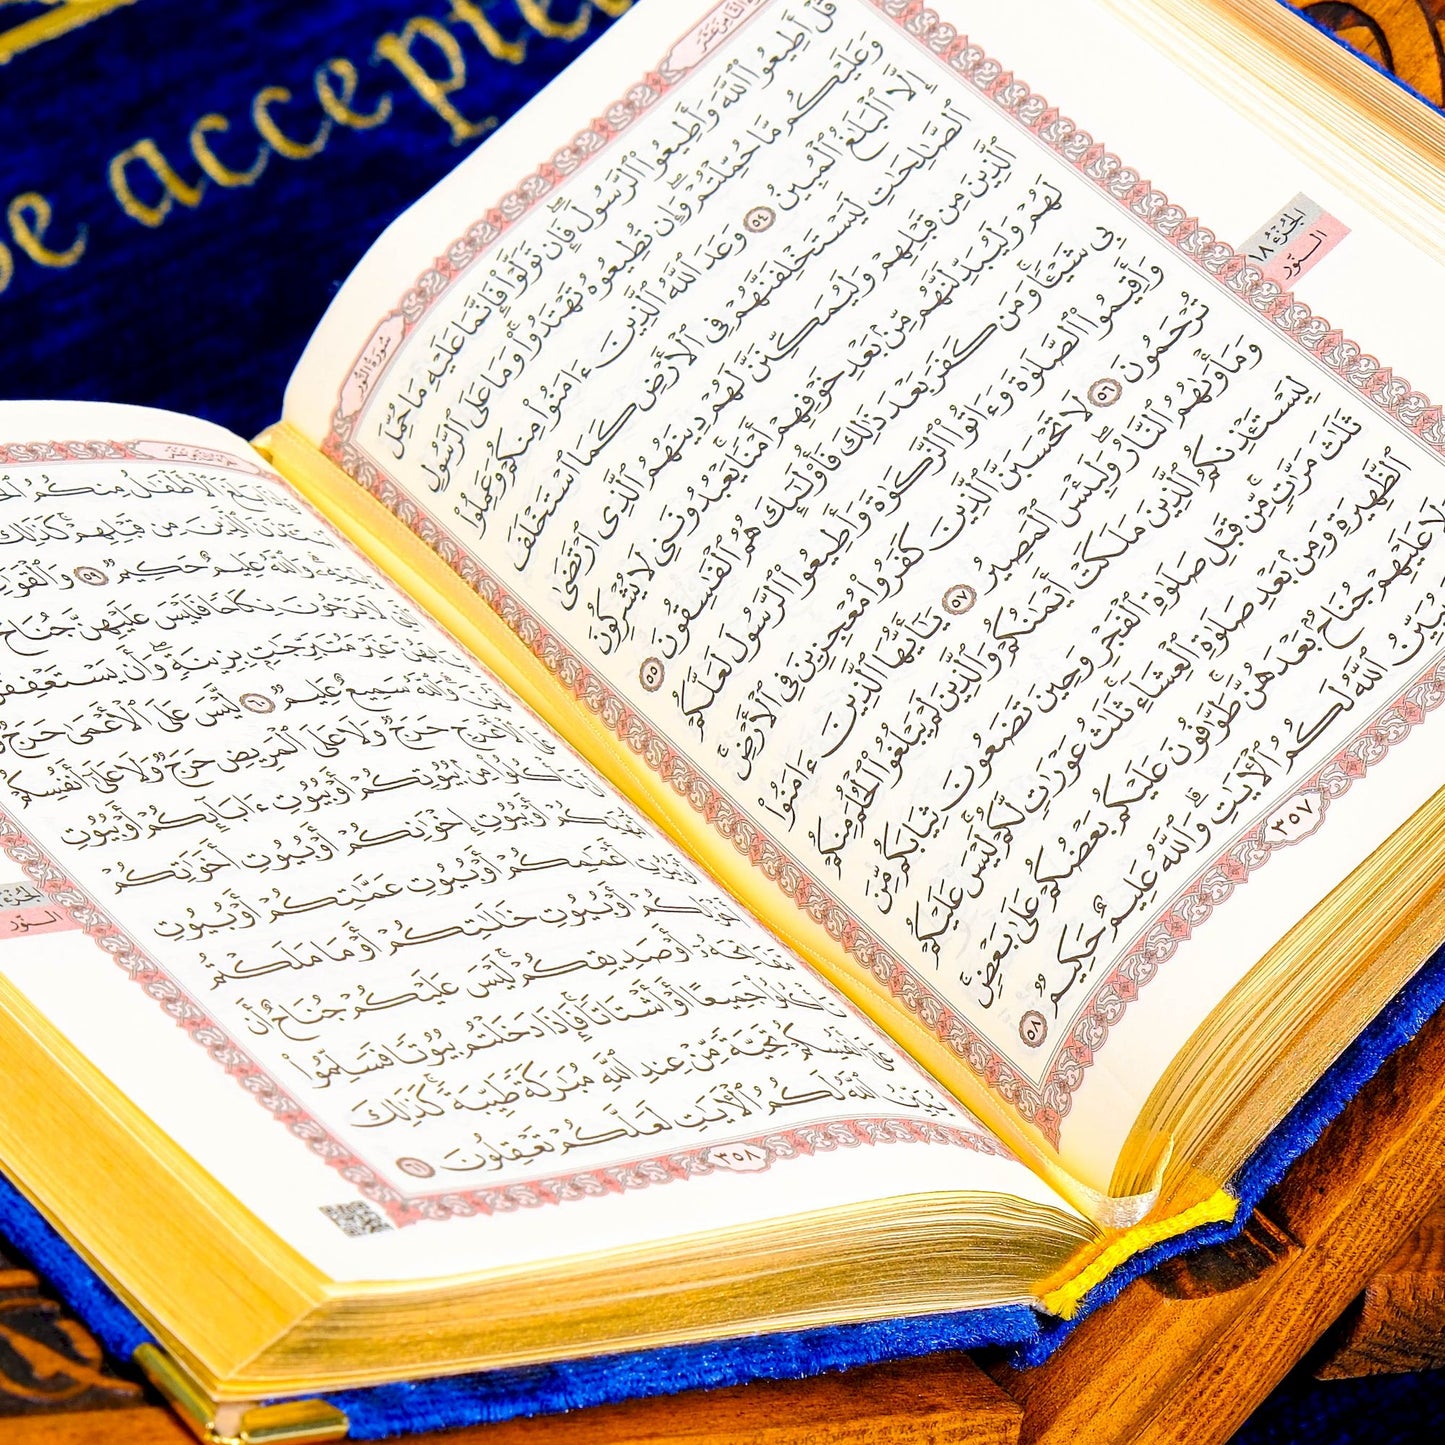 be accepte
سُورَةُ النُّورِ
الجُزْءُ ١٨
النُّور
قُلْ أَطِيعُوا۟ ٱللَّهَ وَأَطِيعُوا۟ ٱلرَّسُولَ ۖ فَإِن تَوَلَّوْا۟ فَإِنَّمَا عَلَيْهِ مَا حُمِّلَ
وَعَلَيْكُم مَّا حُمِّلْتُمْ ۖ وَإِن تُطِيعُوهُ تَهْتَدُوا۟ ۚ وَمَا عَلَى ٱلرَّسُولِ
إِلَّا ٱلْبَلَٰغُ ٱلْمُبِينُ ٥٤ وَعَدَ ٱللَّهُ ٱلَّذِينَ ءَامَنُوا۟ مِنكُمْ وَعَمِلُوا۟
ٱلصَّٰلِحَٰتِ لَيَسْتَخْلِفَنَّهُمْ فِى ٱلْأَرْضِ كَمَا ٱسْتَخْلَفَ
ٱلَّذِينَ مِن قَبْلِهِمْ وَلَيُمَكِّنَنَّ لَهُمْ دِينَهُمُ ٱلَّذِى ٱرْتَضَىٰ
لَهُمْ وَلَيُبَدِّلَنَّهُم مِّنۢ بَعْدِ خَوْفِهِمْ أَمْنًا ۚ يَعْبُدُونَنِى لَا يُشْرِكُونَ
بِى شَيْـًٔا ۚ وَمَن كَفَرَ بَعْدَ ذَٰلِكَ فَأُو۟لَٰٓئِكَ هُمُ ٱلْفَٰسِقُونَ ٥٥
وَأَقِيمُوا۟ ٱلصَّلَوٰةَ وَءَاتُوا۟ ٱلزَّكَوٰةَ وَأَطِيعُوا۟ ٱلرَّسُولَ لَعَلَّكُمْ
تُرْحَمُونَ ٥٦ لَا تَحْسَبَنَّ ٱلَّذِينَ كَفَرُوا۟ مُعْجِزِينَ فِى ٱلْأَرْضِ ۚ
وَمَأْوَىٰهُمُ ٱلنَّارُ ۖ وَلَبِئْسَ ٱلْمَصِيرُ ٥٧ يَٰٓأَيُّهَا ٱلَّذِينَ ءَامَنُوا۟
لِيَسْتَـْٔذِنكُمُ ٱلَّذِينَ مَلَكَتْ أَيْمَٰنُكُمْ وَٱلَّذِينَ لَمْ يَبْلُغُوا۟ ٱلْحُلُمَ مِنكُمْ
ثَلَٰثَ مَرَّٰتٍ ۚ مِّن قَبْلِ صَلَوٰةِ ٱلْفَجْرِ وَحِينَ تَضَعُونَ ثِيَابَكُم مِّنَ
ٱلظَّهِيرَةِ وَمِنۢ بَعْدِ صَلَوٰةِ ٱلْعِشَآءِ ۚ ثَلَٰثُ عَوْرَٰتٍ لَّكُمْ ۚ لَيْسَ عَلَيْكُمْ
وَلَا عَلَيْهِمْ جُنَاحٌۢ بَعْدَهُنَّ ۚ طَوَّٰفُونَ عَلَيْكُم بَعْضُكُمْ عَلَىٰ بَعْضٍ ۚ
يُبَيِّنُ ٱللَّهُ لَكُمُ ٱلْءَايَٰتِ ۗ وَٱللَّهُ عَلِيمٌ حَكِيمٌ ٥٨
٣٥٧
ٱلْأَطْفَٰلُ مِنكُمُ
ٱلَّذِينَ مِن قَبْلِهِمْ ۚ كَذَٰلِكَ
وَٱللَّهُ عَلِيمٌ حَكِيمٌ ٥٩
لَا يَرْجُونَ نِكَاحًا فَلَيْسَ عَلَيْهِنَّ جُنَاحٌ
غَيْرَ مُتَبَرِّجَٰتٍۭ بِزِينَةٍ ۖ وَأَن يَسْتَعْفِفْنَ
وَٱللَّهُ سَمِيعٌ عَلِيمٌ ٦٠ لَّيْسَ عَلَى ٱلْأَعْمَىٰ حَرَجٌ
ٱلْأَعْرَجِ حَرَجٌ وَلَا عَلَى ٱلْمَرِيضِ حَرَجٌ وَلَا عَلَىٰٓ أَنفُسِكُمْ
تَأْكُلُوا۟ مِنۢ بُيُوتِكُمْ أَوْ بُيُوتِ ءَابَآئِكُمْ أَوْ بُيُوتِ
أَوْ بُيُوتِ إِخْوَٰنِكُمْ أَوْ بُيُوتِ أَخَوَٰتِكُمْ
أَعْمَٰمِكُمْ أَوْ بُيُوتِ عَمَّٰتِكُمْ أَوْ بُيُوتِ
أَوْ بُيُوتِ خَٰلَٰتِكُمْ أَوْ مَا مَلَكْتُم
مَّفَاتِحَهُۥٓ أَوْ صَدِيقِكُمْ ۚ لَيْسَ عَلَيْكُمْ جُنَاحٌ أَن
جَمِيعًا أَوْ أَشْتَاتًا ۚ فَإِذَا دَخَلْتُم بُيُوتًا فَسَلِّمُوا۟
عَلَىٰٓ أَنفُسِكُمْ تَحِيَّةً مِّنْ عِندِ ٱللَّهِ مُبَٰرَكَةً طَيِّبَةً ۚ كَذَٰلِكَ
يُبَيِّنُ ٱللَّهُ لَكُمُ ٱلْءَايَٰتِ لَعَلَّكُمْ تَعْقِلُونَ ٦١
النُّور
٣٥٨